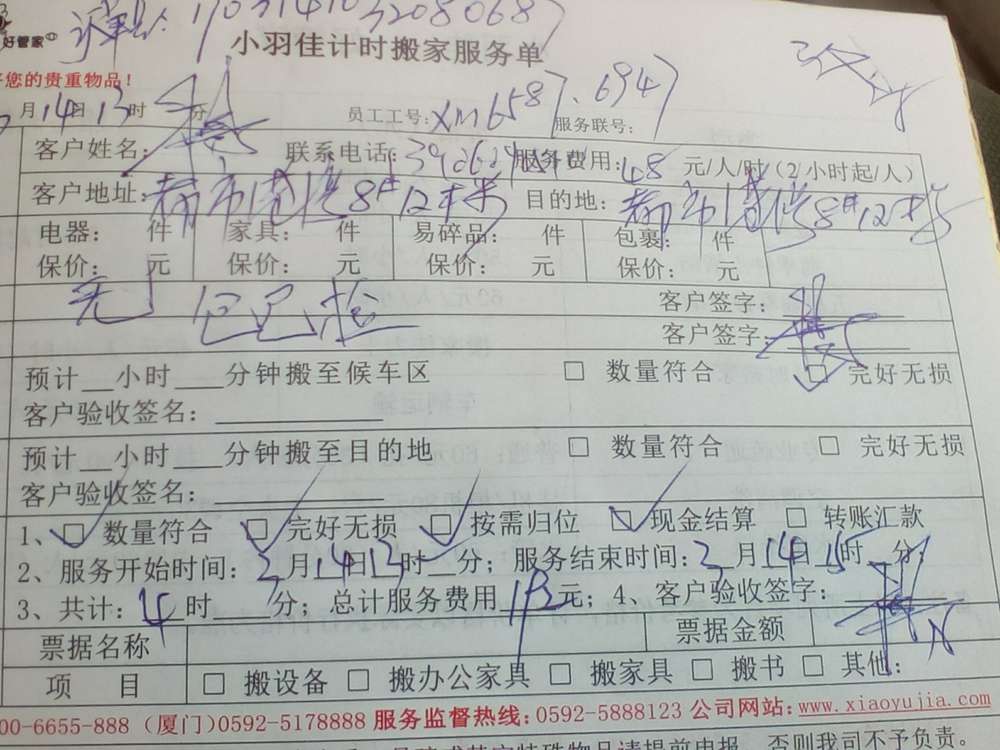 订单号:170314103208068
好管家
小羽佳计时搬家服务单
您的贵重物品！
月14日13时 分 员工工号:xm6587、6947 服务联号:
客户姓名: 联系电话: 服务费用:48 元/人/时（2小时起/人）
客户地址: 都市港湾8#12楼 目的地: 都市港湾8#12楼
电器: 件 家具: 件 易碎品: 件 包裹: 件
保价: 元 保价: 元 保价: 元 保价: 元
客户签字:
客户签字:
预计__小时___分钟搬至候车区 □ 数量符合 □ 完好无损
客户验收签名:
预计__小时___分钟搬至目的地 □ 数量符合 □ 完好无损
客户验收签名:
1、□ 数量符合 □ 完好无损 □ 按需归位 □ 现金结算 □ 转账汇款
2、服务开始时间: 3月14日13时__分; 服务结束时间: 3月14日15时__分;
3、共计: 4时____分; 总计服务费用___元; 4、客户验收签字:
票据名称 票据金额
项 目 □ 搬设备 □ 搬办公家具 □ 搬家具 □ 搬书 □ 其他:
00-6655-888（厦门)0592-5178888 服务监督热线:0592-5888123 公司网站:www.xiaoyujia.com
特殊物品请提前申报，否则我司不予负责。